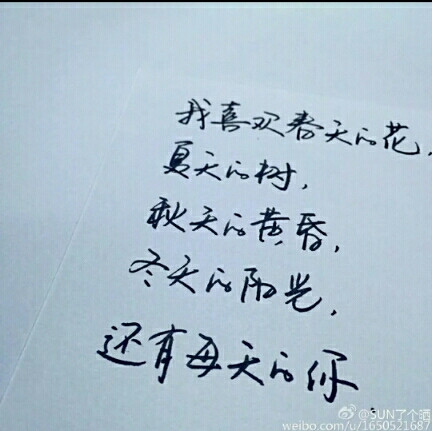 我喜欢春天的花,
夏天的树,
秋天的黄昏,
冬天的阳光,
还有每天的你.
@SUN了个晒
weibo.com/u/1650521687